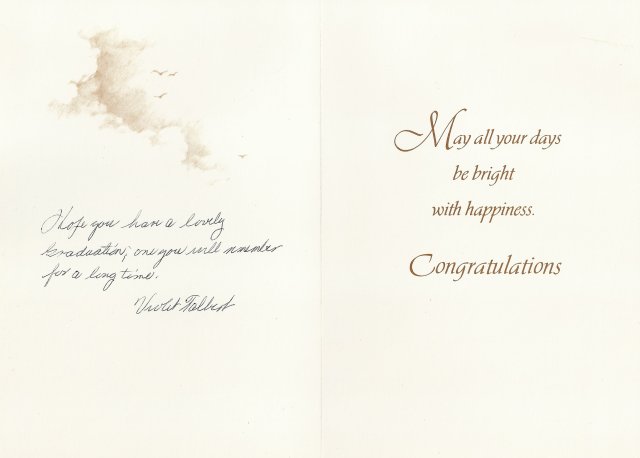 Hope you have a lovely
Graduation, one you will remember
for a long time.
Violet Talbert
May all your days
be bright
with happiness.
Congratulations